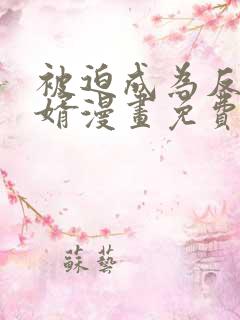 被迫成為反
婿漫畫免費
蘇藝